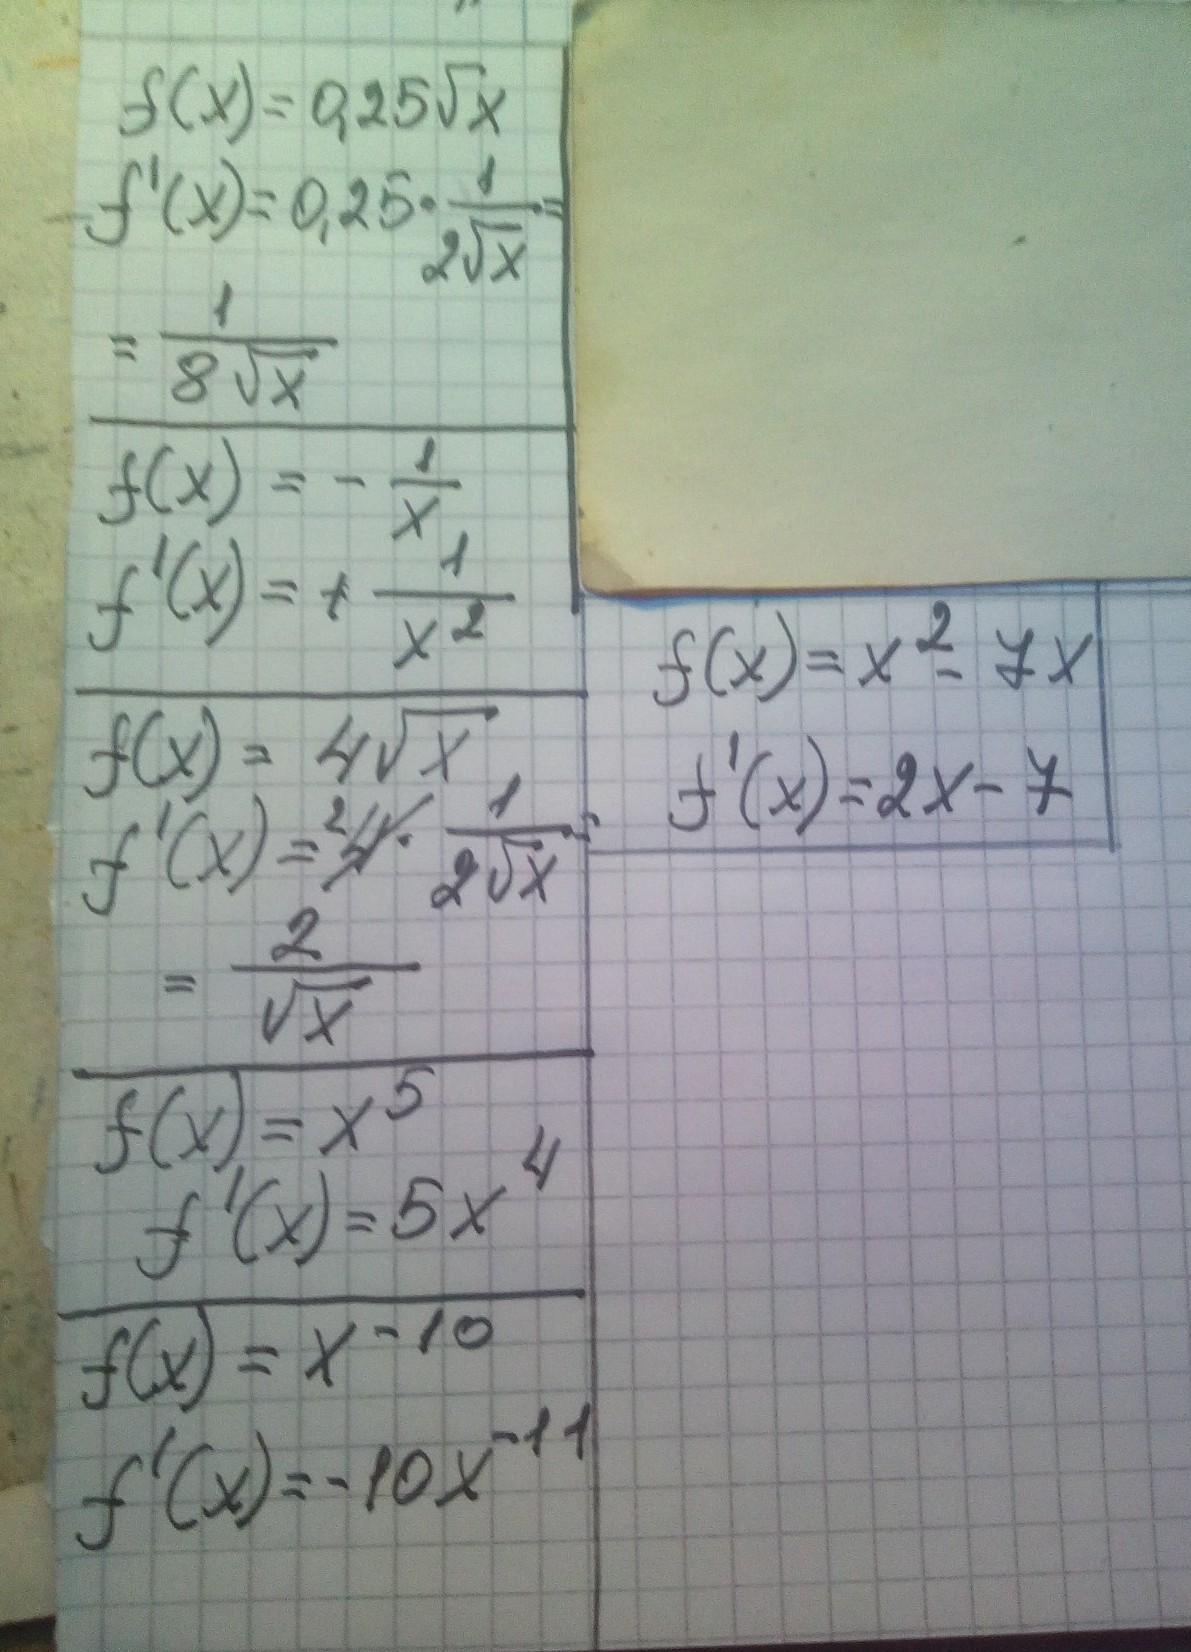 f(x) = 0,25√x
f'(x) = 0,25 · 1/(2√x) =
= 1/(8√x)
f(x) = - 1/x
f'(x) = + 1/x²
f(x) = 4√x
f'(x) = ²4 · 1/(2√x) =
= 2/√x
f(x) = x⁵
f'(x) = 5x⁴
f(x) = x⁻¹⁰
f'(x) = -10x⁻¹¹
f(x) = x² - 7x
f'(x) = 2x - 7